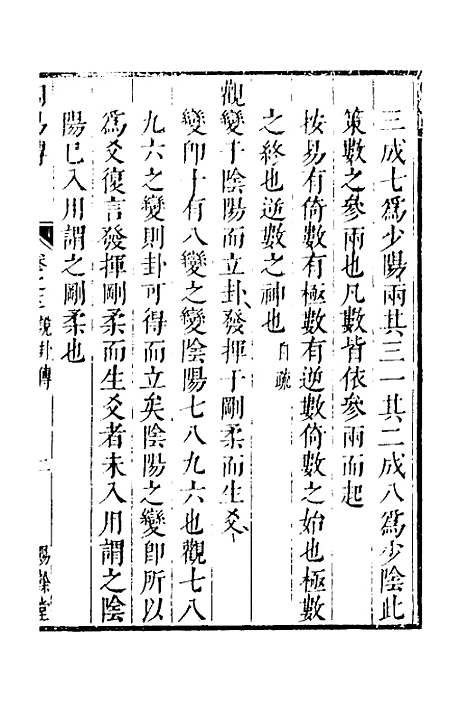 三成七爲少陽兩其三一其二成八爲少陰此
策數之參兩也凡數皆依參兩而起
按易有倚數有極數有逆數倚數之始也極數
之終也逆數之神也自疏
觀變于陰陽而立卦發揮于剛柔而生爻
變卽十有八變之變陰陽七八九六也觀七八
九六之變則卦可得而立矣陰陽之變卽所以
爲爻復言發揮剛柔而生爻者未入用謂之陰
陽已入用謂之剛柔也
易傳 卷之 說卦傳 二